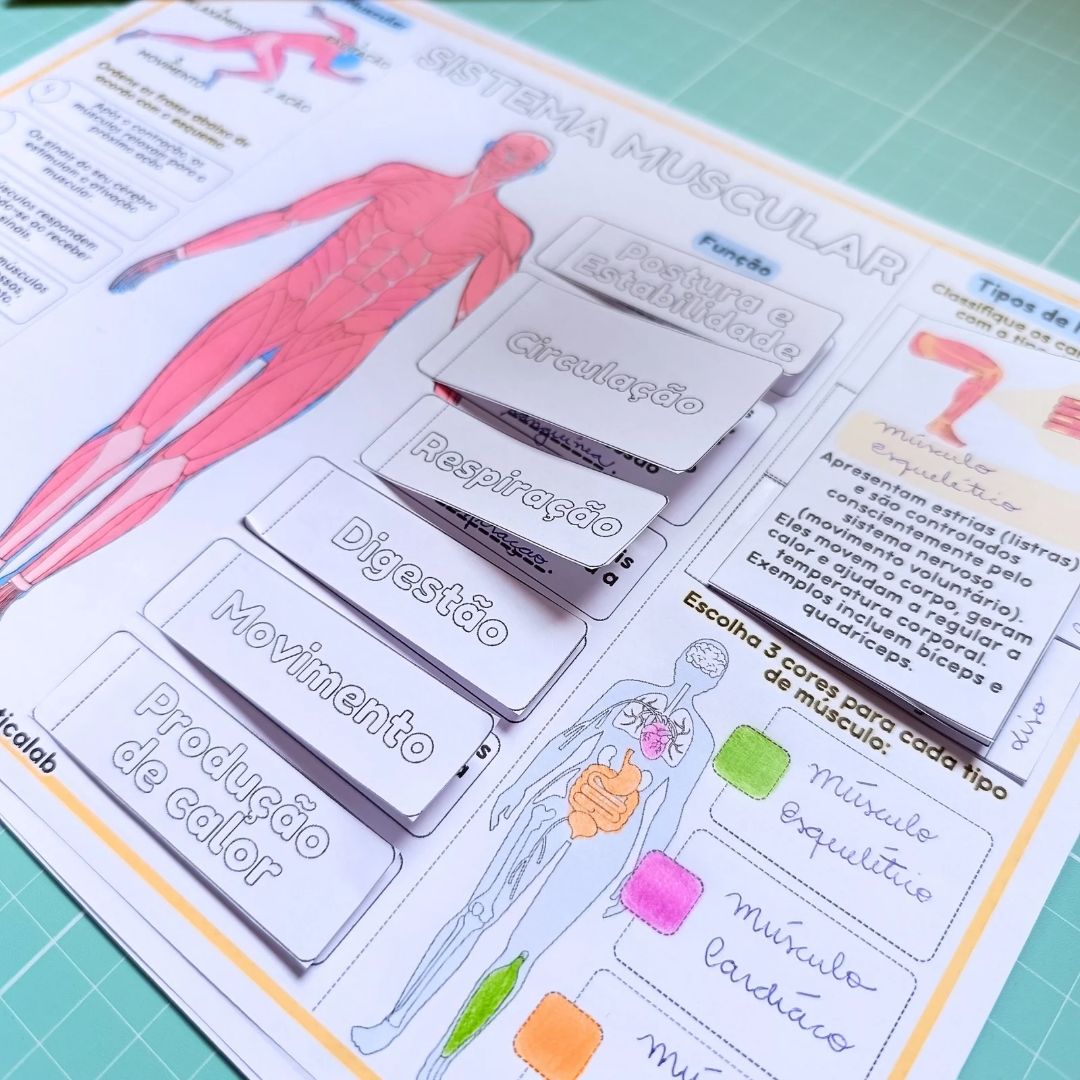 MOVIMENTO
AÇÃO
Ordene as frases abaixo de
acordo com o esquema
Após a contração, os
músculos relaxam para a
próxima ação
Os sinais do seu cérebro
estimulam a ativação
muscular.
músculos respondem
ao receber
sinais.
músculos
SISTEMA MUSCULAR
Função
Postura e
Estabilidade
Circulação
sanguínea.
Respiração
Digestão
Movimento
Produção
de calor
ticalab
Tipos de
Classifique os
com o
músculo
esquelético
Apresentam estrias (listras)
e são controlados
conscientemente pelo
sistema nervoso
(movimento voluntário).
Eles movem o corpo, geram
calor e ajudam a regular a
temperatura corporal.
Exemplos incluem bíceps e
quadríceps.
Liso
Escolha 3 cores para cada tipo
de músculo:
Músculo
esquelético
Músculo
Cardíaco